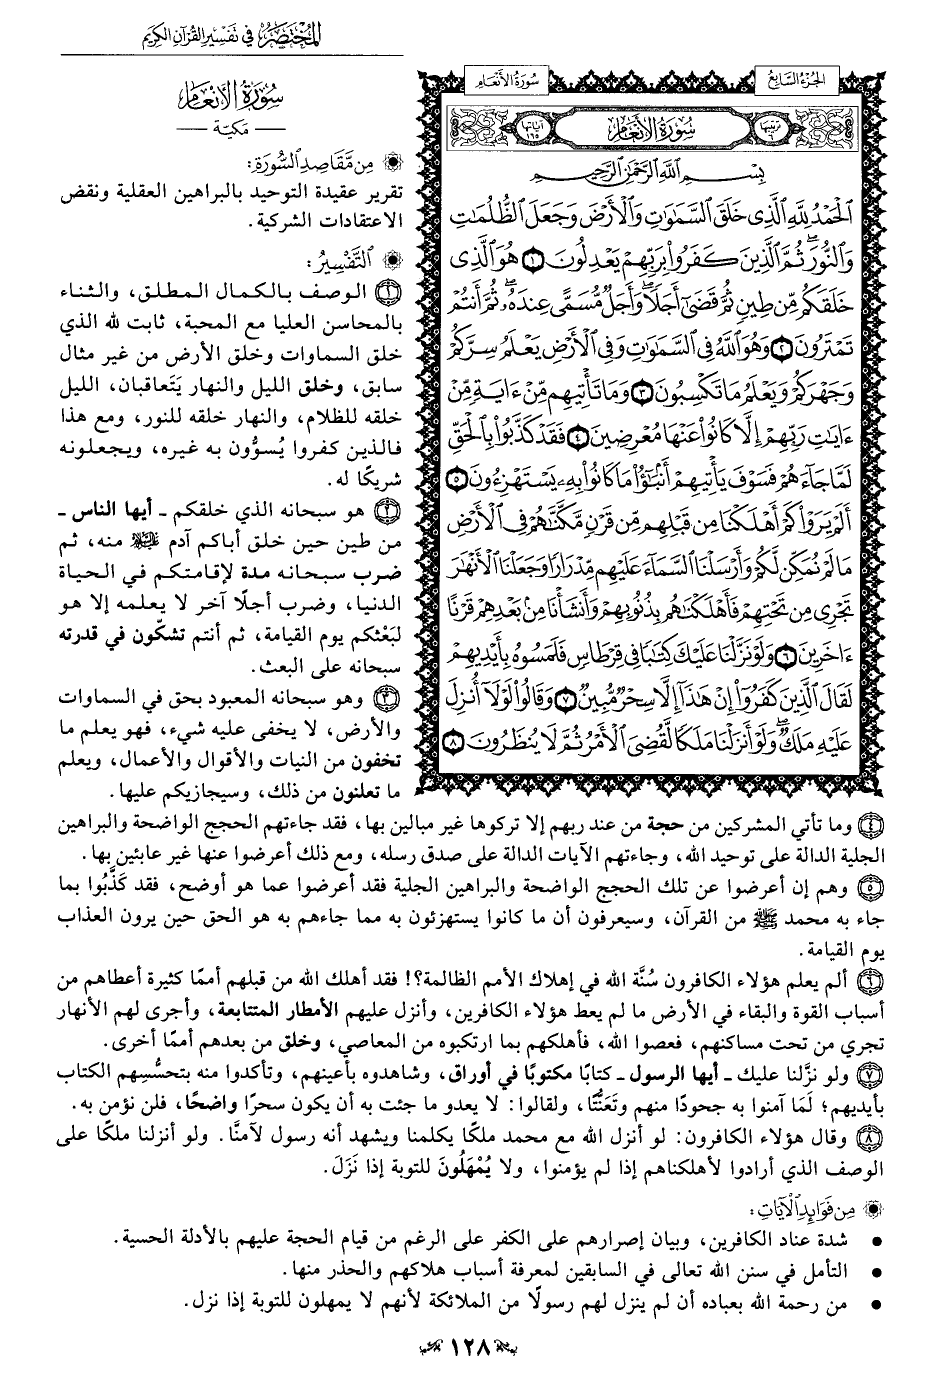 المختصر في تفسير القرآن الكريم
الجزء السابع
سورة الأنعام
ترتيبها ٦
سورة الأنعام
آياتها ١٦٥
بسم الله الرحمن الرحيم
الْحَمْدُ لِلَّهِ الَّذِي خَلَقَ السَّمَاوَاتِ وَالْأَرْضَ وَجَعَلَ الظُّلُمَاتِ
وَالنُّورَ ۖ ثُمَّ الَّذِينَ كَفَرُوا بِرَبِّهِمْ يَعْدِلُونَ ١ هُوَ الَّذِي
خَلَقَكُم مِّن طِينٍ ثُمَّ قَضَىٰ أَجَلًا ۖ وَأَجَلٌ مُّسَمًّى عِندَهُ ۖ ثُمَّ أَنتُمْ
تَمْتَرُونَ ٢ وَهُوَ اللَّهُ فِي السَّمَاوَاتِ وَفِي الْأَرْضِ يَعْلَمُ سِرَّكُمْ
وَجَهْرَكُمْ وَيَعْلَمُ مَا تَكْسِبُونَ ٣ وَمَا تَأْتِيهِم مِّنْ ءَايَةٍ مِّنْ
ءَايَاتِ رَبِّهِمْ إِلَّا كَانُوا عَنْهَا مُعْرِضِينَ ٤ فَقَدْ كَذَّبُوا بِالْحَقِّ
لَمَّا جَاءَهُمْ فَسَوْفَ يَأْتِيهِمْ أَنبَاؤُا مَا كَانُوا بِهِ يَسْتَهْزِءُونَ ٥
أَلَمْ يَرَوْا كَمْ أَهْلَكْنَا مِن قَبْلِهِم مِّن قَرْنٍ مَّكَّنَّاهُمْ فِي الْأَرْضِ
مَا لَمْ نُمَكِّن لَّكُمْ وَأَرْسَلْنَا السَّمَاءَ عَلَيْهِم مِّدْرَارًا وَجَعَلْنَا الْأَنْهَارَ
تَجْرِي مِن تَحْتِهِمْ فَأَهْلَكْنَاهُم بِذُنُوبِهِمْ وَأَنشَأْنَا مِن بَعْدِهِمْ قَرْنًا
ءَاخَرِينَ ٦ وَلَوْ نَزَّلْنَا عَلَيْكَ كِتَابًا فِي قِرْطَاسٍ فَلَمَسُوهُ بِأَيْدِيهِمْ
لَقَالَ الَّذِينَ كَفَرُوا إِنْ هَٰذَا إِلَّا سِحْرٌ مُّبِينٌ ٧ وَقَالُوا لَوْلَا أُنزِلَ
عَلَيْهِ مَلَكٌ ۖ وَلَوْ أَنزَلْنَا مَلَكًا لَّقُضِيَ الْأَمْرُ ثُمَّ لَا يُنظَرُونَ ٨
سورة الأنعام
— مكية —
من مقاصد السورة:
تقرير عقيدة التوحيد بالبراهين العقلية ونقض
الاعتقادات الشركية.
التفسير:
١ الوصف بالكمال المطلق، والثناء
بالمحاسن العليا مع المحبة، ثابت لله الذي
خلق السماوات وخلق الأرض من غير مثال
سابق، وخلق الليل والنهار يَتعاقبان، الليل
خلقه للظلام، والنهار خلقه للنور، ومع هذا
فالذين كفروا يُسوُّون به غيره، ويجعلونه
شريكًا له.
٢ هو سبحانه الذي خلقكم ـ أيها الناس ـ
من طين حين خلق أباكم آدم عليه السلام منه، ثم
ضرب سبحانه مدة لإقامتكم في الحياة
الدنيا، وضرب أجلًا آخر لا يعلمه إلا هو
لبَعْثكم يوم القيامة، ثم أنتم تشكّون في قدرته
سبحانه على البعث.
٣ وهو سبحانه المعبود بحق في السماوات
والأرض، لا يخفى عليه شيء، فهو يعلم ما
تخفون من النيات والأقوال والأعمال، ويعلم
ما تعلنون من ذلك، وسيجازيكم عليها.
٤ وما تأتي المشركين من حجة من عند ربهم إلا تركوها غير مبالين بها، فقد جاءتهم الحجج الواضحة والبراهين
الجلية الدالة على توحيد الله، وجاءتهم الآيات الدالة على صدق رسله، ومع ذلك أعرضوا عنها غير عابئين بها.
٥ وهم إن أعرضوا عن تلك الحجج الواضحة والبراهين الجلية فقد أعرضوا عما هو أوضح، فقد كَذَّبُوا بما
جاء به محمد ﷺ من القرآن، وسيعرفون أن ما كانوا يستهزئون به مما جاءهم به هو الحق حين يرون العذاب
يوم القيامة.
٦ ألم يعلم هؤلاء الكافرون سُنَّة الله في إهلاك الأمم الظالمة؟! فقد أهلك الله من قبلهم أممًا كثيرة أعطاهم من
أسباب القوة والبقاء في الأرض ما لم يعط هؤلاء الكافرين، وأنزل عليهم الأمطار المتتابعة، وأجرى لهم الأنهار
تجري من تحت مساكنهم، فعصوا الله، فأهلكهم بما ارتكبوه من المعاصي، وخلق من بعدهم أممًا أخرى.
٧ ولو نزَّلنا عليك ـ أيها الرسول ـ كتابًا مكتوبًا في أوراق، وشاهدوه بأعينهم، وتأكدوا منه بتحسُّسِهم الكتاب
بأيديهم؛ لَمَا آمنوا به جحودًا منهم وتَعَنُّتًا، ولقالوا: لا يعدو ما جئت به أن يكون سحرًا واضحًا، فلن نؤمن به.
٨ وقال هؤلاء الكافرون: لو أنزل الله مع محمد ملكًا يكلمنا ويشهد أنه رسول لآمنَّا. ولو أنزلنا ملكًا على
الوصف الذي أرادوا لأهلكناهم إذا لم يؤمنوا، ولا يُمْهَلُونَ للتوبة إذا نَزَلَ.
من فوائد الآيات:
• شدة عناد الكافرين، وبيان إصرارهم على الكفر على الرغم من قيام الحجة عليهم بالأدلة الحسية.
• التأمل في سنن الله تعالى في السابقين لمعرفة أسباب هلاكهم والحذر منها.
• من رحمة الله بعباده أن لم ينزل لهم رسولًا من الملائكة لأنهم لا يمهلون للتوبة إذا نزل.
١٢٨